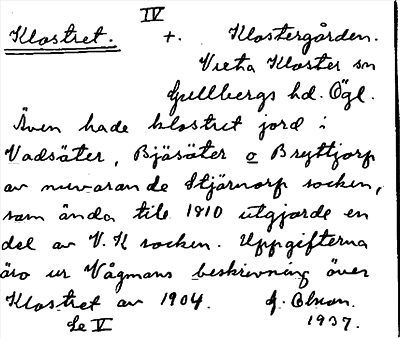 IV
Klostret. +. Klostergården.
Vreta Kloster sn
Gullbergs hd. Ögl.
Även hade klostret jord i
Vadsäter, Bjäsäter o Bryttjorp
av nuvarande Stjärnorp socken,
som ända till 1810 utgjorde en
del av V. K socken. Uppgifterna
äro ur Vågmans beskrivning över
Klostret av 1904. J. Olson.
Se V 1937.